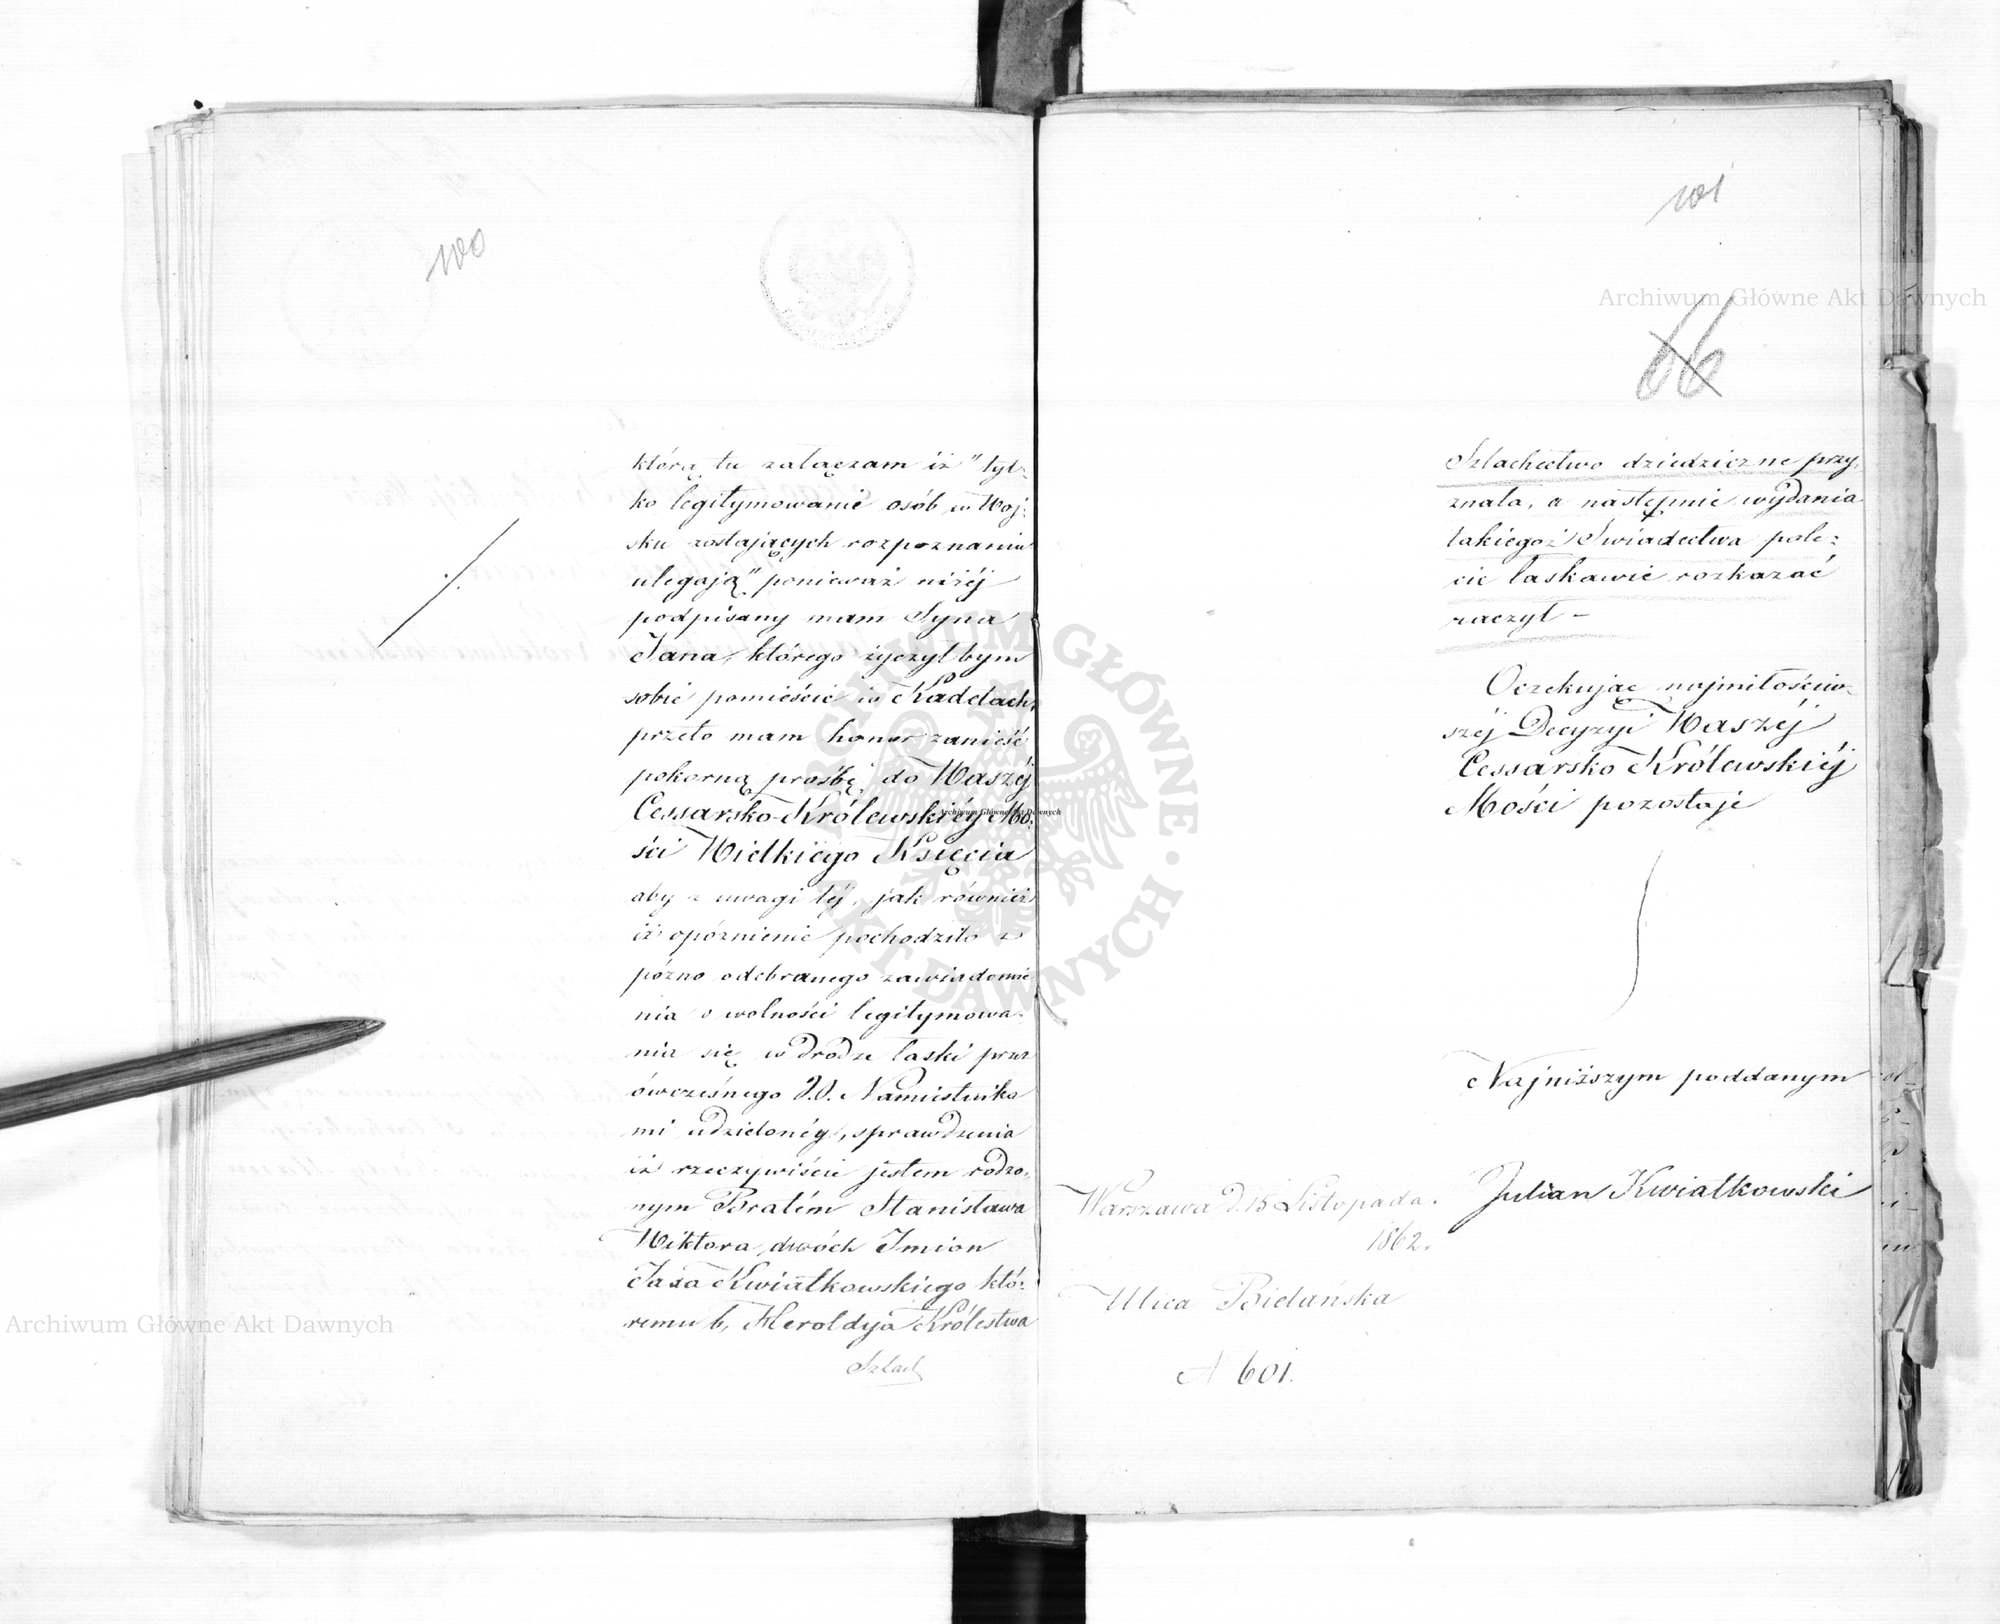 100
którą tu załączam iż "tyl-
ko legitymowanie osób w Woj-
sku zostających rozpoznaniu
ulegają" ponieważ niżéj
podpisany mam Syna
Jana, którego życzył bym
sobie pomieścić w Kadetach,
przeto mam honor zanieść
pokorną prośbę do Waszéj
Cessarsko-Królewskiéj Mo-
ści Wielkiego Księcia
aby z uwagi téj, jak również
iż opóźnienie pochodziło z
późno odebranego zawiadomie
nia o wolności legitymowa-
nia się w drodze łaski przez
ówcześnego J.O. Namiestnika
mi udzielonéy, sprawdzenia
iż rzeczywiście jestem rodzo-
nym Bratém Stanisława
Wiktora dwóch Imion
Jaxa Kwiatkowskiego któ-
remu b. Heroldya Królestwa
Szlach
101
66
Szlachectwo dziedziczne przy-
znała, a następnie wydania
takiegoż Świadectwa pole-
cić łaskawie rozkazać
raczył –
Oczekując najmiłościw-
széj Decyzyi Waszéj
Cessarsko Królewskiéj
Mości pozostaje
Najniższym poddanym
Julian Kwiatkowski
Warszawa d. 15 Listopada.
1862.
Ulica Bielańska
N 601.
Archiwum Główne Akt Dawnych
Archiwum Główne Akt Dawnych
Archiwum Główne Akt Dawnych
ARCHIWUM GŁÓWNE AKT DAWNYCH